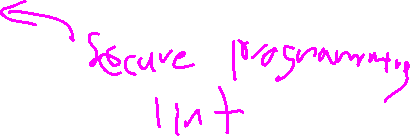 Secure programming
lint